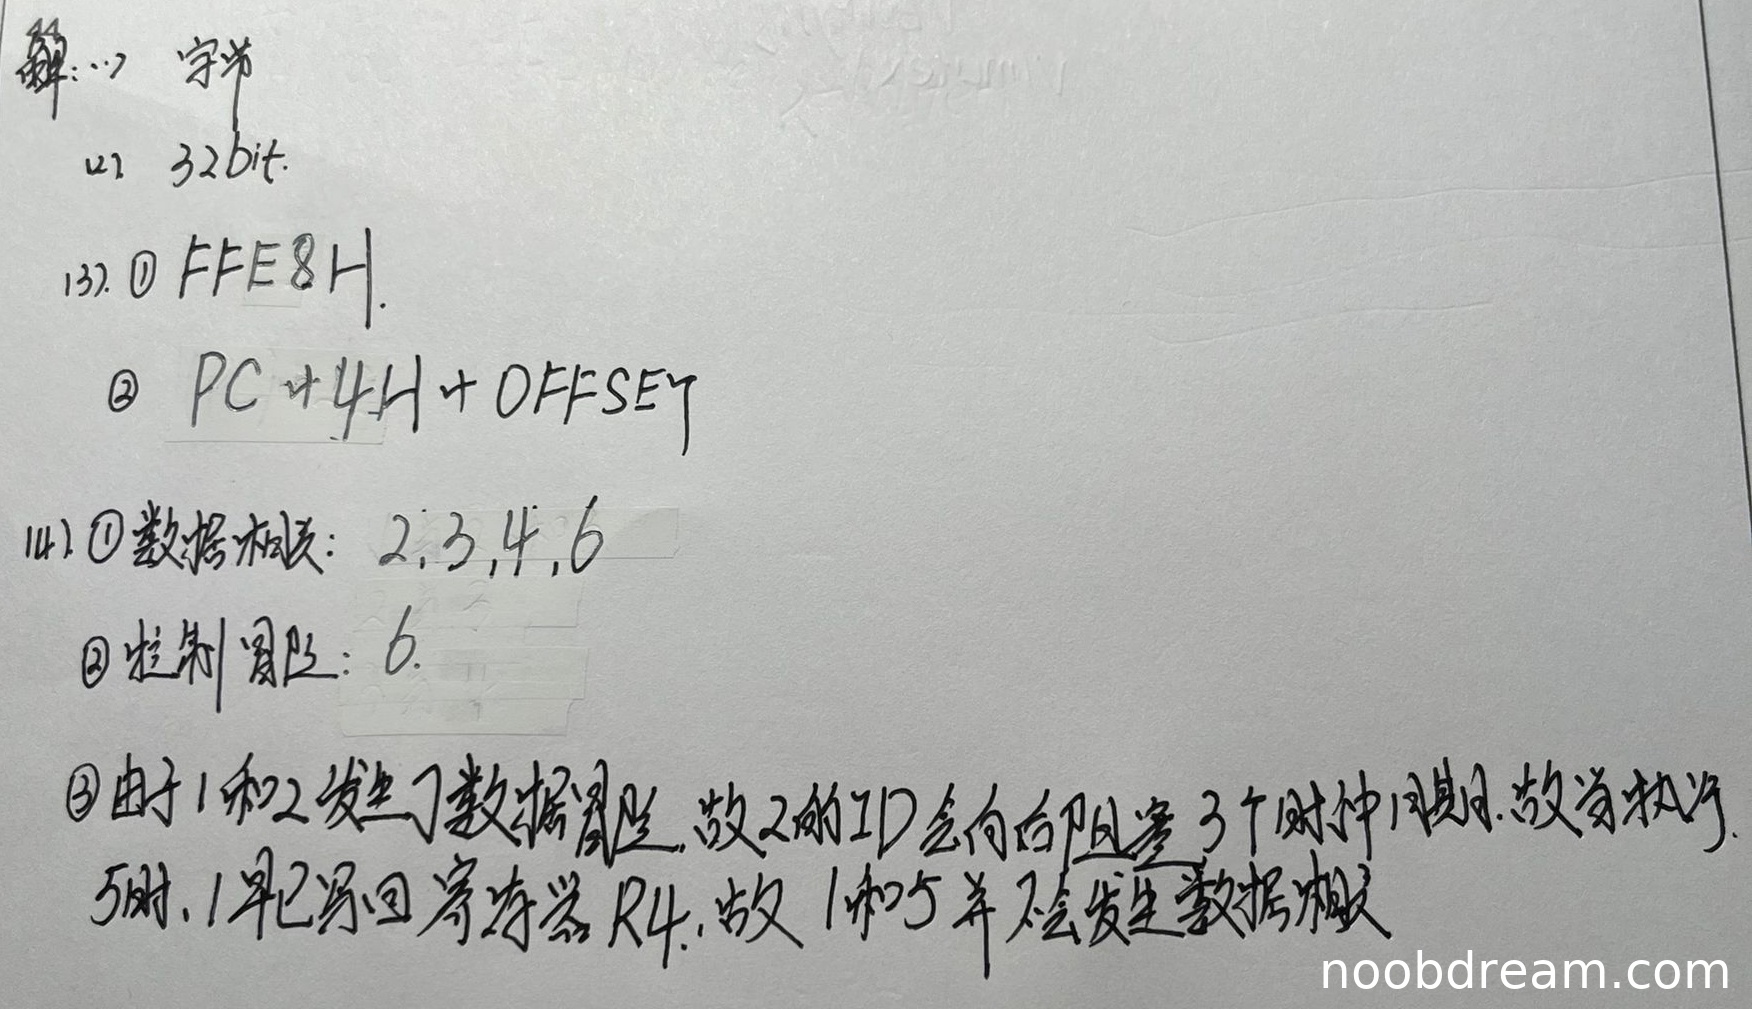 解:(1) 字节
(2) 32bit.
(3).① FFE8H.
② PC+4H+OFFSET
(4).①数据相关: 2,3,4,6
②控制冒险: 6.
③由于1和2发生了数据冒险,故2的ID会向后阻塞3个时钟周期.故当执行
5时,1早已写回寄存器R4,故1和5并不会发生数据相关
noobdream.com